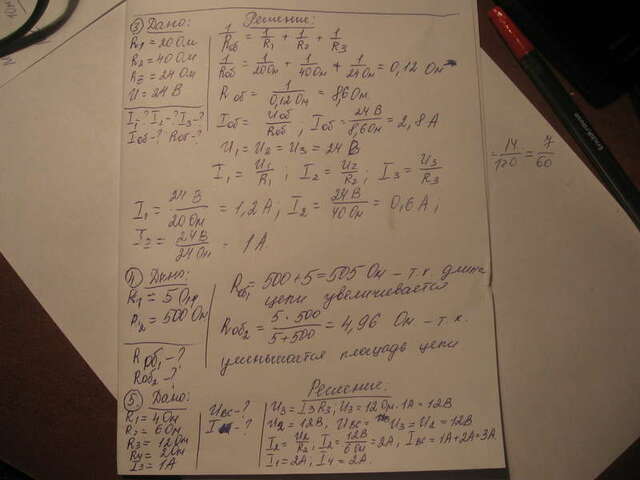 ③ Дано:
R1 = 20 Ом
R2 = 40 Ом
R3 = 24 Ом
U = 24 В
I1-? I2-? I3-?
Iоб-? Rоб-?
Решение:
1/Rоб = 1/R1 + 1/R2 + 1/R3
1/Rоб = 1/20 Ом + 1/40 Ом + 1/24 Ом = 0,12 Ом
Rоб = 1/0,12 Ом = 8,6 Ом.
Iоб = Uоб/Rоб, Iоб = 24 В/8,6 Ом = 2,8 А
U1 = U2 = U3 = 24 В
I1 = U1/R1 ; I2 = U2/R2 ; I3 = U3/R3
I1 = 24 В/20 Ом = 1,2 А ; I2 = 24 В/40 Ом = 0,6 А ;
I3 = 24 В/24 Ом = 1 А
= 14/120 = 7/60
④ Дано:
R1 = 5 Ом
R2 = 500 Ом
Rоб1 -?
Rоб2 -?
Rоб1 = 500 + 5 = 505 Ом – т.к длина
цепи увеличивается
Rоб2 = 5 · 500/5 + 500 = 4,96 Ом – т.к.
уменьшается площадь цепи
⑤ Дано:
R1 = 4 Ом
R2 = 6 Ом
R3 = 12 Ом
R4 = 2 Ом
I3 = 1 А
Uвс -?
I -?
Решение:
U3 = I3 R3, U3 = 12 Ом · 1А = 12 В
U2 = 12 В, Uвс = U3 = U2 = 12 В
I2 = U2/R2, I2 = 12 В/6 Ом = 2А, Iвс = 1А + 2А = 3А
I1 = 2А, I4 = 2А.